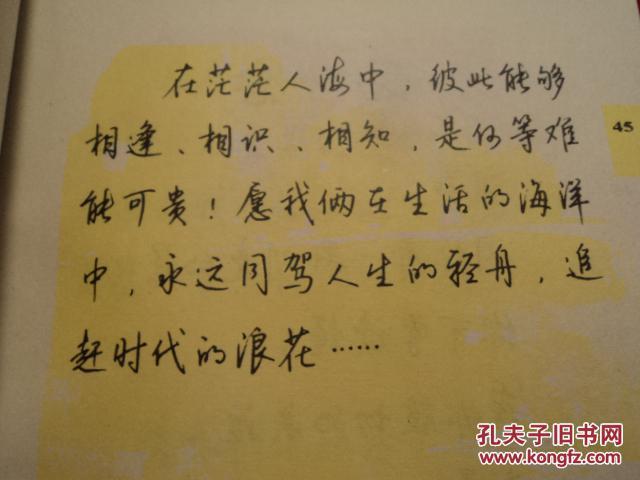 在茫茫人海中，彼此能够
相逢、相识、相知，是何等难
能可贵！愿我俩在生活的海洋
中，永远同驾人生的轻舟，追
赶时代的浪花……
45
孔夫子旧书网
www.kongfz.com